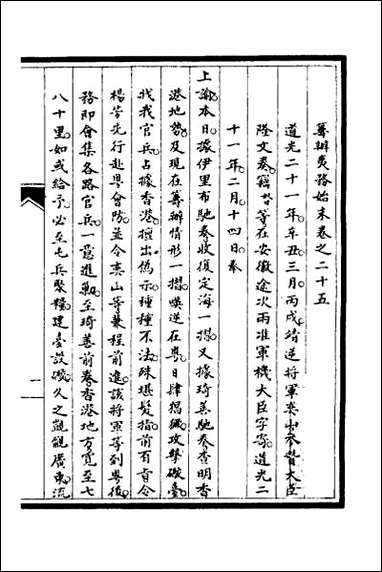 籌辦夷務始末卷之二十五
道光二十一年辛丑三月丙戌靖逆將軍奕山參贊大臣
隆文奏竊等在安徽途次兩准軍機大臣字寄道光二
十一年二月十四日奉
上諭本日據伊里布馳奏收復定海一摺又據琦善馳奏查明香
港地勢及現在籌辦情形一摺嘆逆在粵日肆猖獗攻擊礮臺
戕我官兵占據香港擅出偽示種種不法殊堪髮指前有旨令
楊芳先行赴粵會防並令奕山等兼程前進該將軍等到粵後
務即會集各路官兵一意進勦至琦善前奏香港地方寬至七
八十里如或給予必至屯兵聚糧建臺設礮久之覬覦廣東流
一